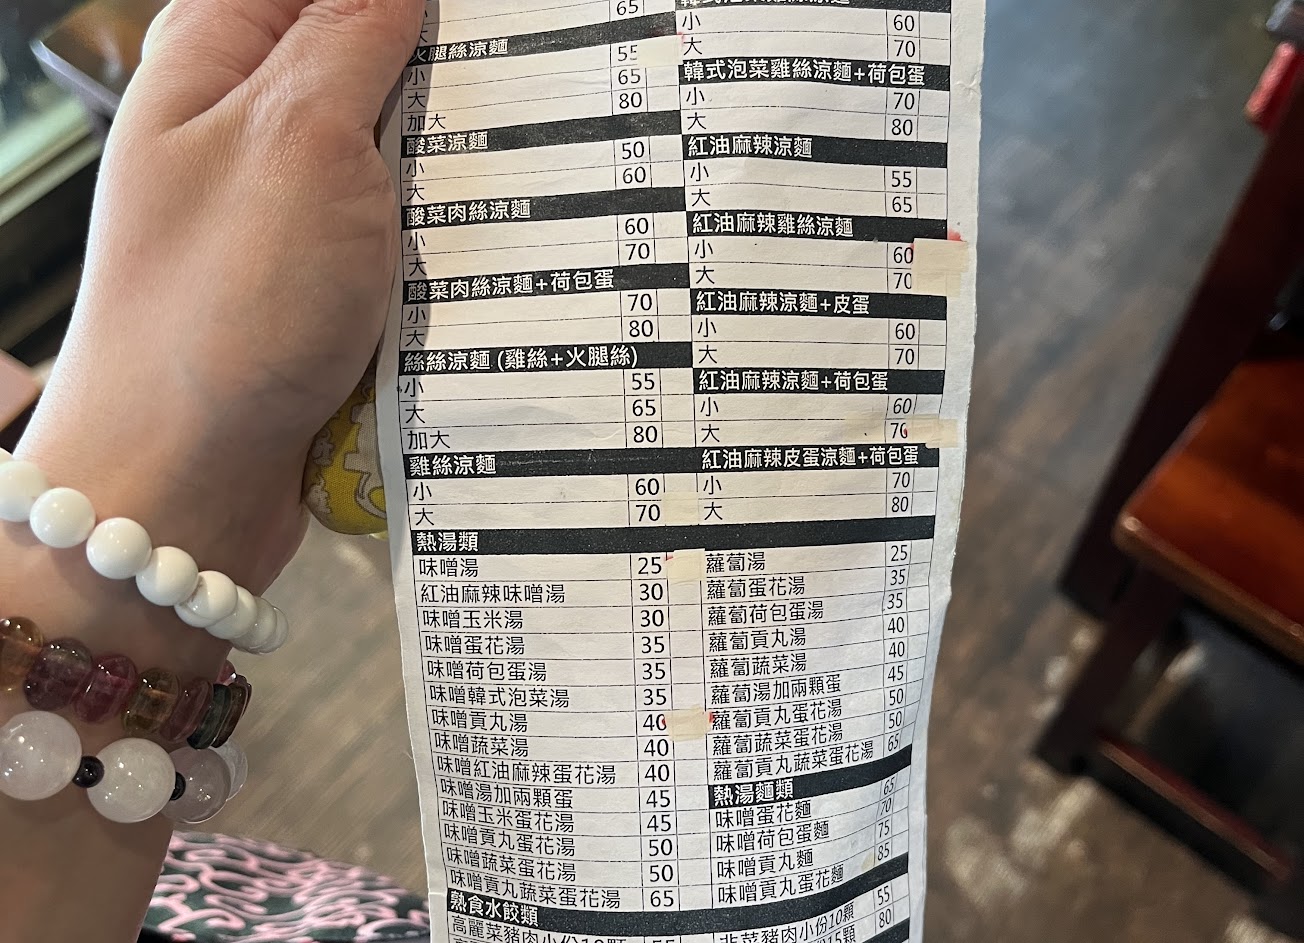 65
大
火腿絲涼麵
小 55
大 65
加大 80
酸菜涼麵
小 50
大 60
酸菜肉絲涼麵
小 60
大 70
酸菜肉絲涼麵+荷包蛋
小 70
大 80
絲絲涼麵 (雞絲+火腿絲)
小 55
大 65
加大 80
雞絲涼麵
小 60
大 70
熱湯類
味噌湯 25
紅油麻辣味噌湯 30
味噌玉米湯 30
味噌蛋花湯 35
味噌荷包蛋湯 35
味噌韓式泡菜湯 35
味噌貢丸湯 40
味噌蔬菜湯 40
味噌紅油麻辣蛋花湯 40
味噌湯加兩顆蛋 45
味噌玉米蛋花湯 45
味噌貢丸蛋花湯 50
味噌蔬菜蛋花湯 50
味噌貢丸蔬菜蛋花湯 65
熟食水餃類
高麗菜豬肉小份10顆 55
小 60
大 70
韓式泡菜雞絲涼麵+荷包蛋
小 70
大 80
紅油麻辣涼麵
小 55
大 65
紅油麻辣雞絲涼麵
小 60
大 70
紅油麻辣涼麵+皮蛋
小 60
大 70
紅油麻辣涼麵+荷包蛋
小 60
大 70
紅油麻辣皮蛋涼麵+荷包蛋
小 70
大 80
蘿蔔湯 25
蘿蔔蛋花湯 35
蘿蔔荷包蛋湯 35
蘿蔔貢丸湯 40
蘿蔔蔬菜湯 40
蘿蔔湯加兩顆蛋 45
蘿蔔貢丸蛋花湯 50
蘿蔔蔬菜蛋花湯 50
蘿蔔貢丸蔬菜蛋花湯 65
熱湯麵類
味噌蛋花麵 65
味噌荷包蛋麵 70
味噌貢丸麵 75
味噌貢丸蛋花麵 85
韭菜豬肉小份10顆 55
15顆 80